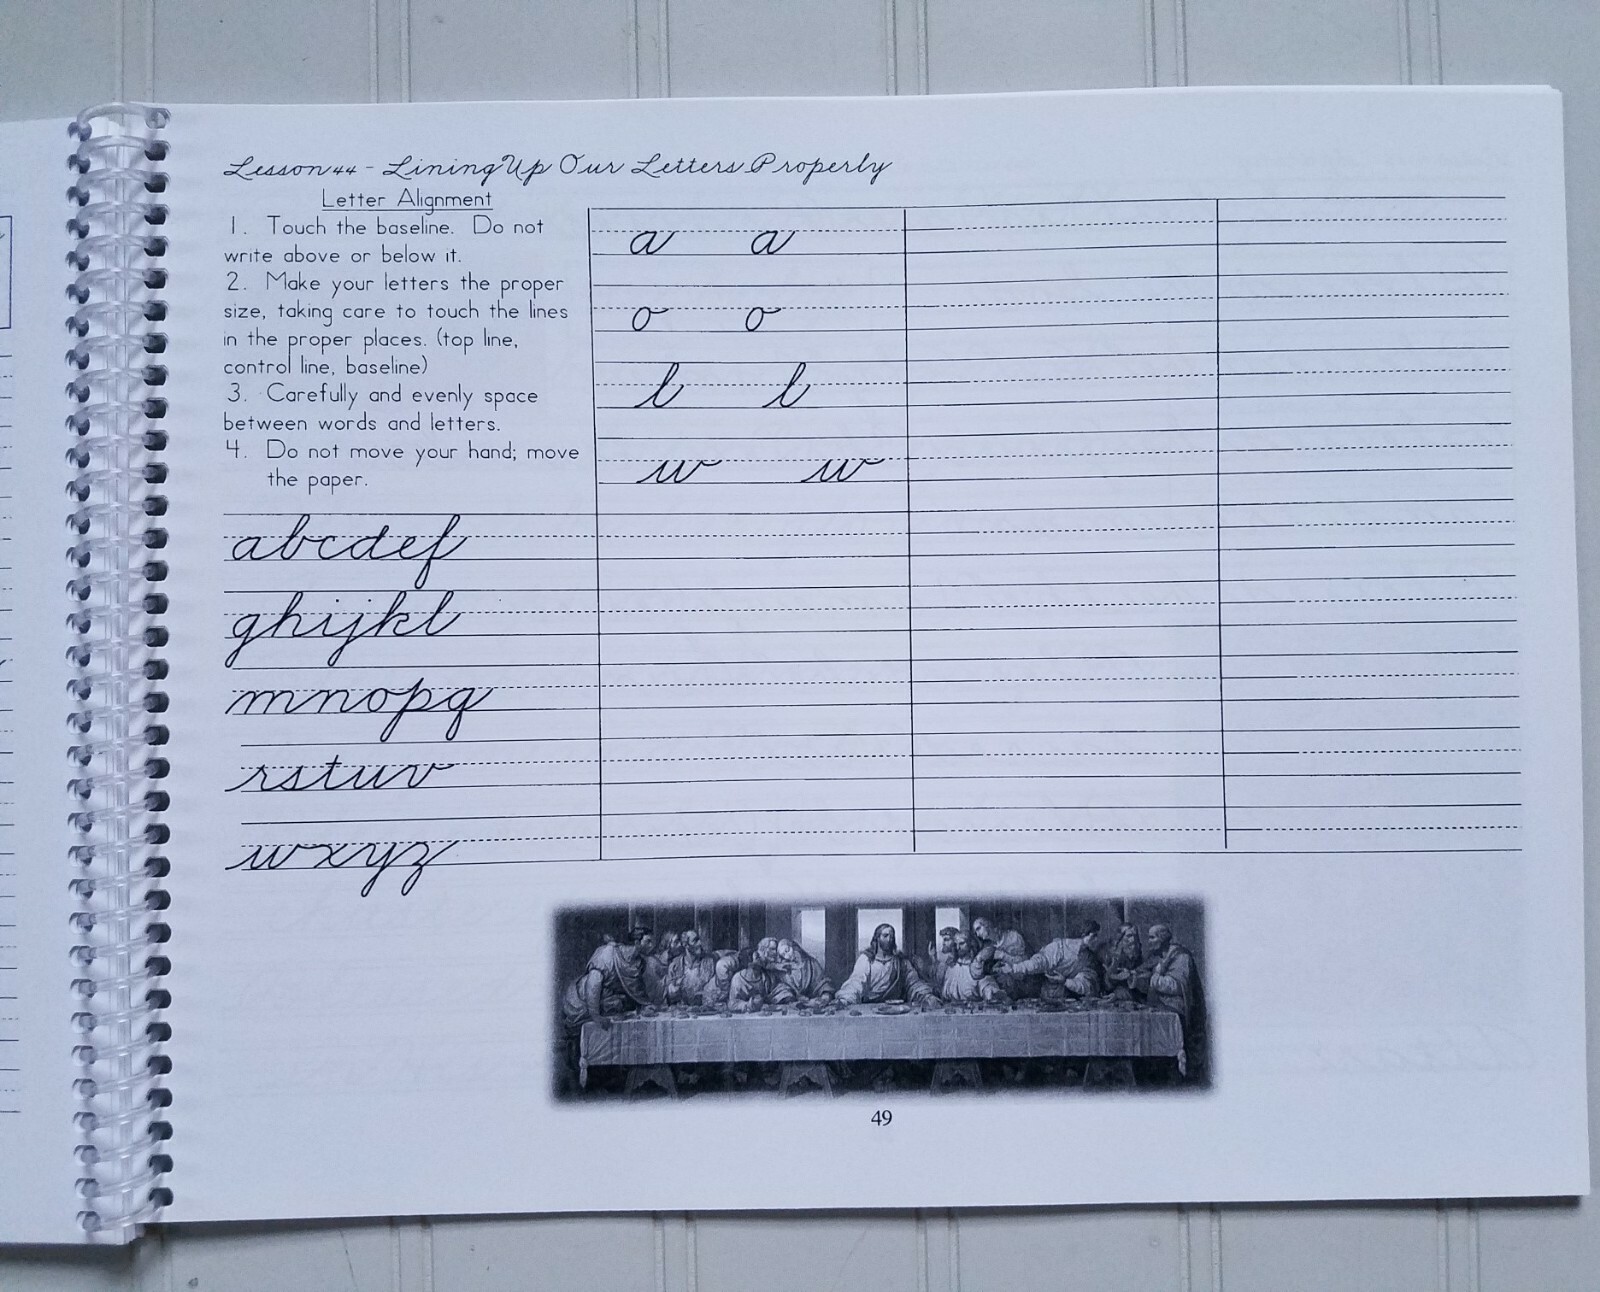 Lesson 44 - Lining Up Our Letters Properly
Letter Alignment
1. Touch the baseline. Do not
write above or below it.
2. Make your letters the proper
size, taking care to touch the lines
in the proper places. (top line,
control line, baseline)
3. Carefully and evenly space
between words and letters.
4. Do not move your hand; move
the paper.
a a
o o
l l
w w
abcdef
ghijkl
mnopq
rstuv
wxyz
49